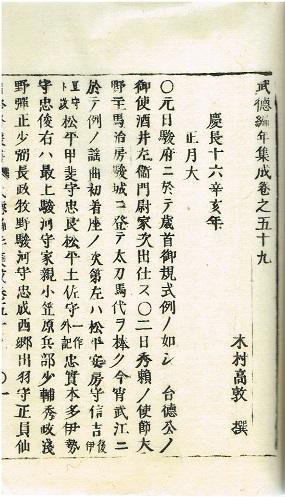 武德編年集成卷之五十九
木村高敦 撰
慶長十六辛亥年
正月大
〇元日駿府ニ於テ歳首御規式例ノ如シ 台德公ノ
御使酒井左衛門尉家次出仕ス〇二日秀賴ノ使節大
野主馬治房駿城ニ登テ太刀馬代ヲ捧ク今宵武江ニ
於テ例ノ謡曲初着座ノ次第左ハ松平安房守信吉後伊
豆守ト改松平甲斐守忠良松平土佐守一作外記忠實本多伊勢
守忠俊右ハ最上駿河守家親小笠原兵部少輔秀政淺
野彈正少弼長政牧野駿河守忠成西郷出羽守正員仙